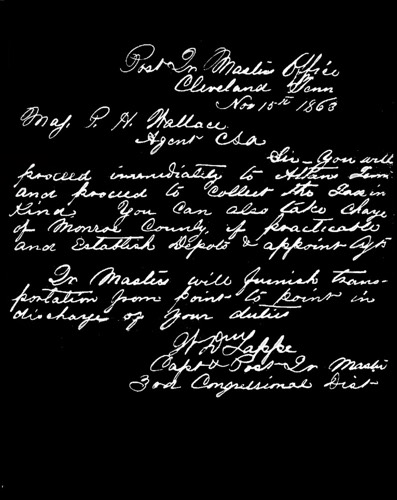 Post Qr Masters Office
Cleveland Tenn
Nov 15th 1863
Maj. P. H. Wallace
Agent CSA
Sir – You will
proceed immediately to Athens Tenn
and proceed to collect the Tax in
Kind. You can also take charge
of Monroe County, if practicable
and Establish Depots & appoint Agts
Qr Masters will furnish trans-
portation from point to point in
discharge of your duties
Lappe
Capt & Post Qr Master
3rd Congressional Dist